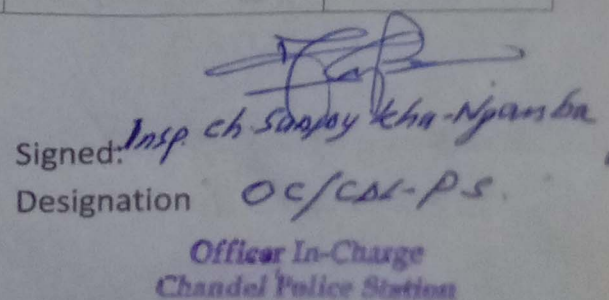 Signed: Insp. Ch. Sanjoy Kha-Nganba
Designation OC/CDL-PS.
Officer In-Charge
Chandel Police Station